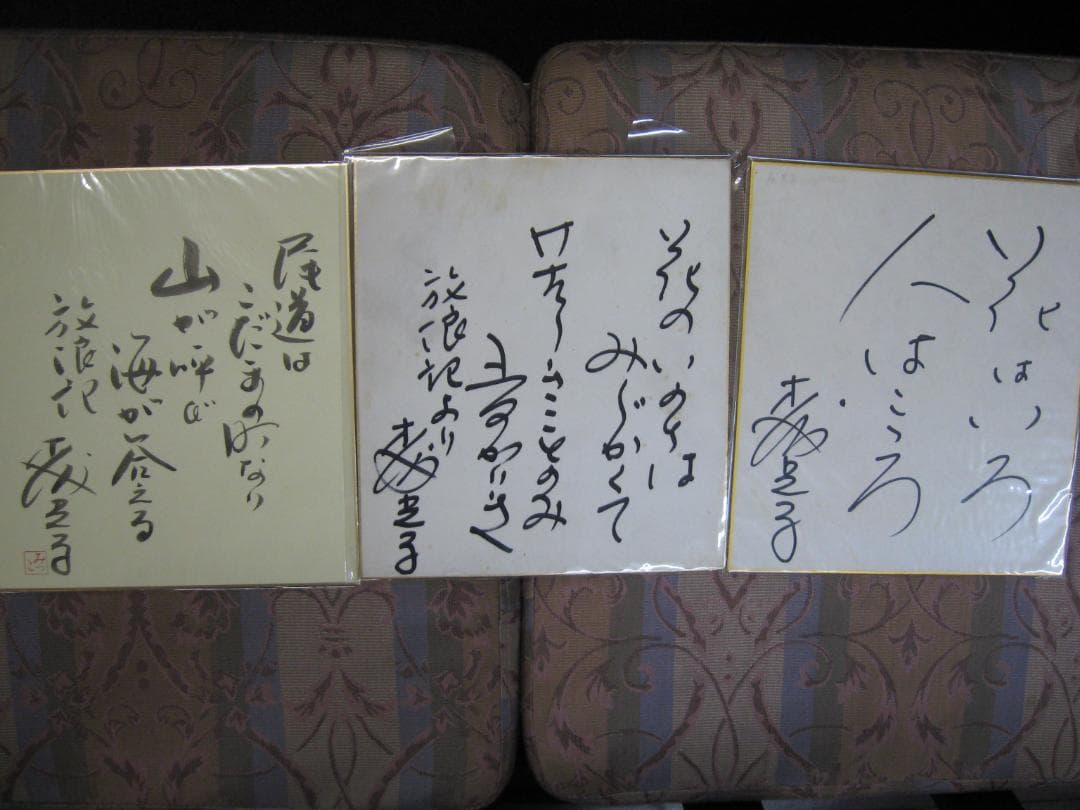 花はいろ
人はこゝろ
森光子
花のいのちは
みじかくて
苦しきことのみ
多かりき
放浪記より
森光子
尾道は
こだまの町なり
山が呼び
海が答える
放浪記
森光子